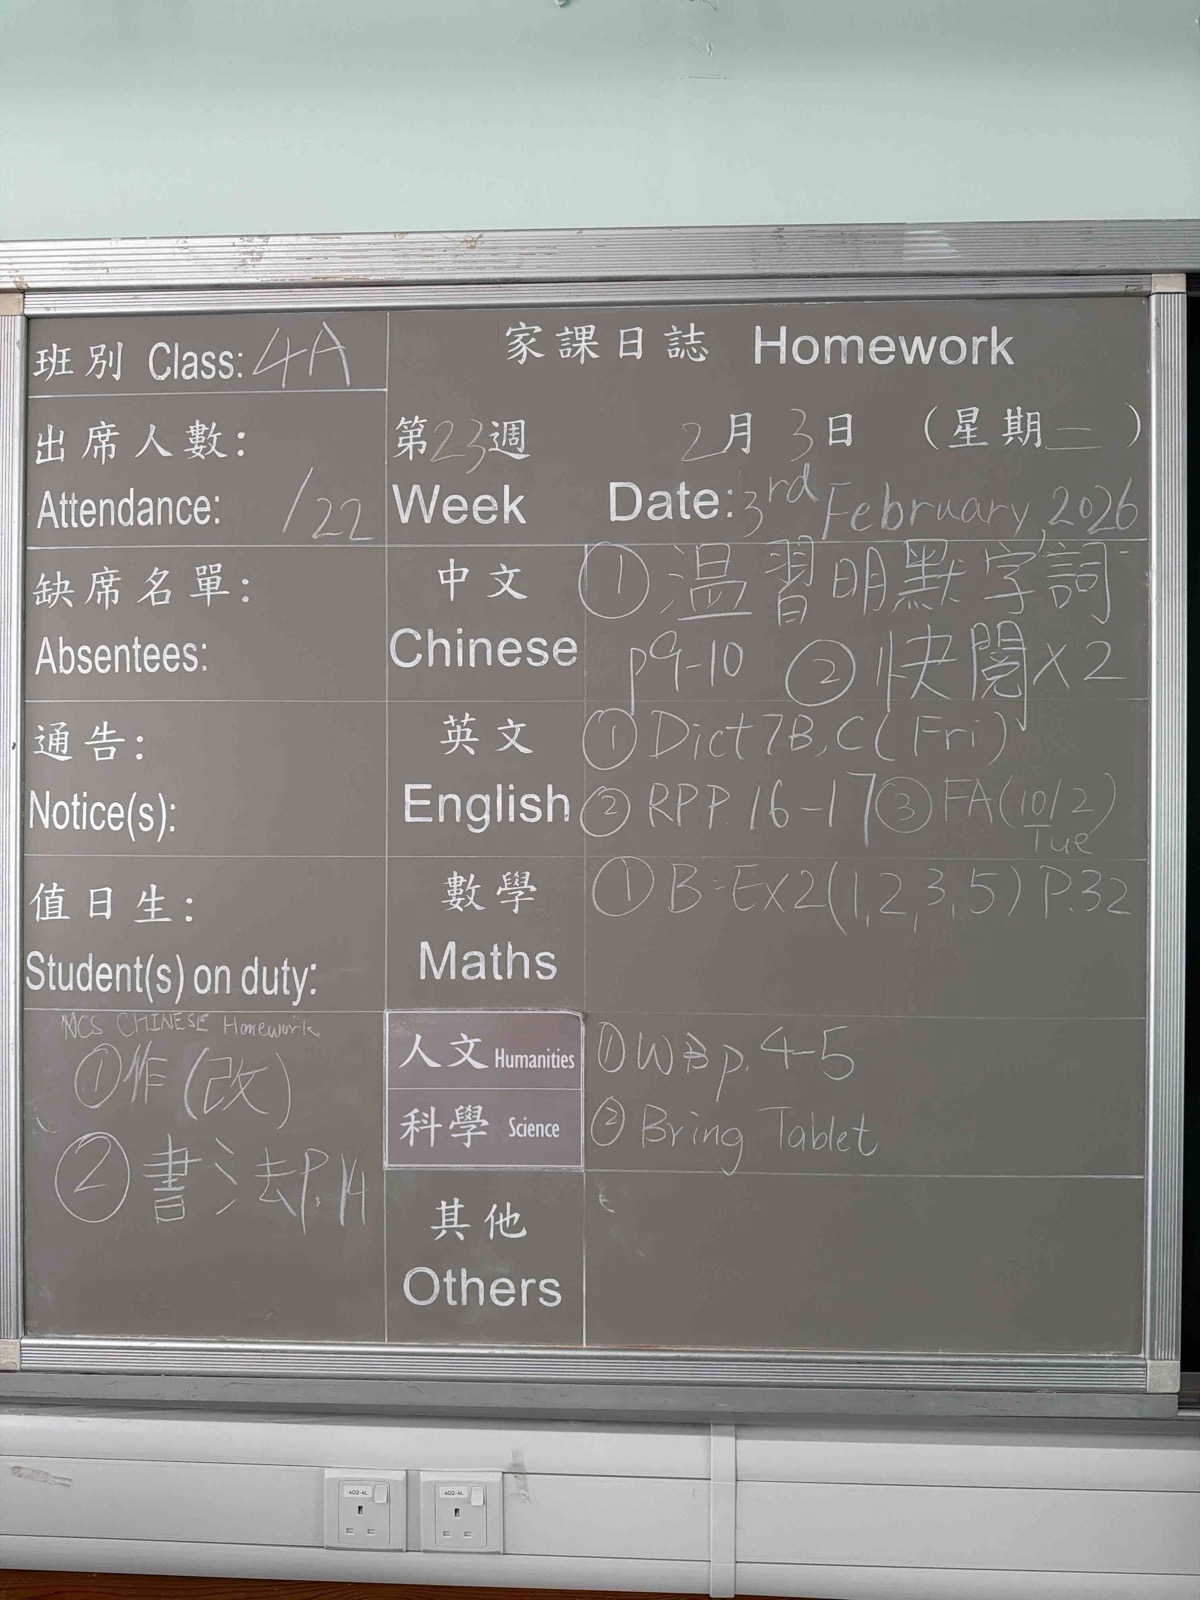 班別 Class: 4A
家課日誌 Homework
出席人數:
Attendance: /22
第23週 2月3日 (星期二)
Week Date: 3rd February 2026
缺席名單:
Absentees:
中文
Chinese
①溫習明默字詞
p9-10 ②快閱x2
通告:
Notice(s):
英文
English
①Dict 7B,C (Fri)
②RPP.16-17 ③FA(10/2)
Tue
值日生:
Student(s) on duty:
數學
Maths
①B:Ex2(1,2,3,5) P.32
NCS CHINESE Homework
①作(改)
②書法P.14
人文 Humanities
科學 Science
①WBp.4-5
②Bring Tablet
其他
Others
402-4L
402-4L